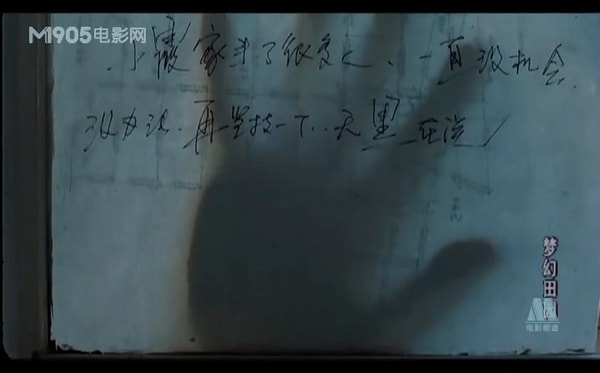 M1905电影网
小霞家来了很多人、一直没机会.
没办法.再坚持一下..天黑在说
梦幻田
电影频道